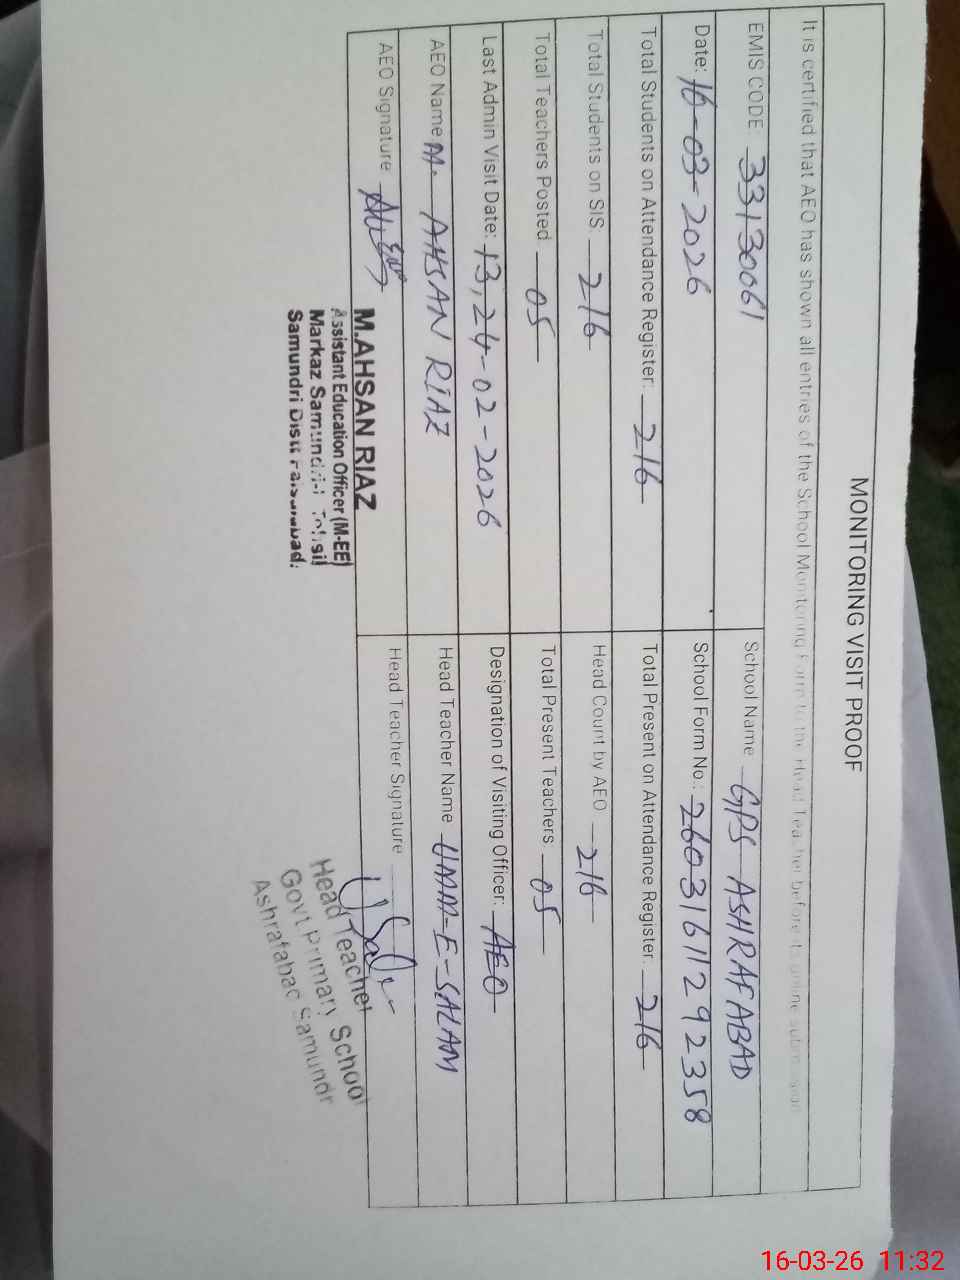 MONITORING VISIT PROOF
It is certified that AEO has shown all entries of the School Monitoring Form to the Head Teacher before its online submission
EMIS CODE: 33130061
School Name GPS ASHRAFABAD
Date: 16-03-2026
School Form No.: 260316112 92358
Total Students on Attendance Register: 216
Total Present on Attendance Register: 216
Total Students on SIS: 216
Head Count by AEO 216
Total Teachers Posted 05
Total Present Teachers 05
Last Admin Visit Date: 13,24-02-2026
Designation of Visiting Officer: AEO
AEO Name M. AHSAN RIAZ
Head Teacher Name UMAR-E-SALAM
AEO Signature
Head Teacher Signature
M.AHSAN RIAZ
Assistant Education Officer (M-EE)
Markaz Samundri-I Tehsil
Samundri Distt Faisalabad.
Head Teacher
Govt Primary School
Ashrafabad Samundri
16-03-26 11:32